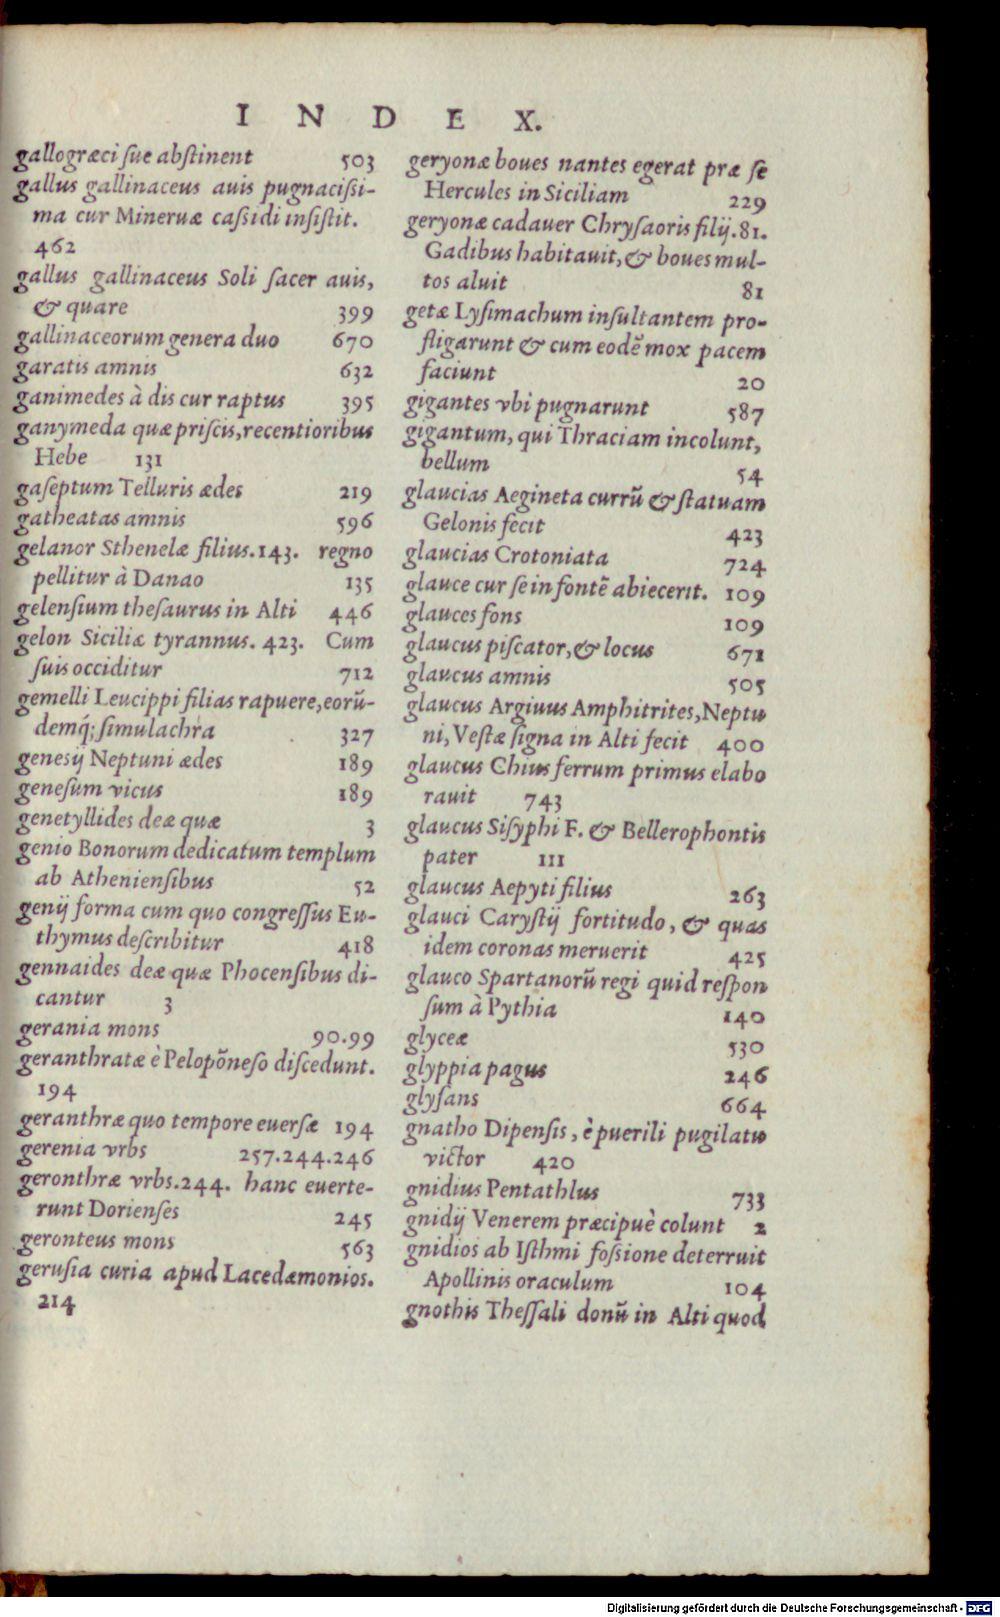 INDEX.
gallogræci sue abstinent 503
gallus gallinaceus auis pugnacissi-
ma cur Mineruæ cassidi insistit.
462
gallus gallinaceus Soli sacer auis,
& quare 399
gallinaceorum genera duo 670
garatis amnis 632
ganimedes à dis cur raptus 395
ganymeda quæ priscis, recentioribus
Hebe 131
gaseptum Telluris ædes 219
gatheatas amnis 596
gelanor Sthenelæ filius. 143. regno
pellitur à Danao 135
gelensium thesaurus in Alti 446
gelon Siciliæ tyrannus. 423. Cum
suis occiditur 712
gemelli Leucippi filias rapuere, eorũ-
demq́; simulachra 327
genesij Neptuni ædes 189
genesum vicus 189
genetyllides deæ quæ 3
genio Bonorum dedicatum templum
ab Atheniensibus 52
genij forma cum quo congressus Eu-
thymus describitur 418
gennaides deæ quæ Phocensibus di-
cantur 3
gerania mons 90.99
geranthratæ è Pelopõneso discedunt.
194
geranthræ quo tempore euersæ 194
gerenia vrbs 257.244.246
geronthræ vrbs. 244. hanc euerte-
runt Dorienses 245
geronteus mons 563
gerusia curia apud Lacedæmonios.
214
geryonæ boues nantes egerat præ se
Hercules in Siciliam 229
geryonæ cadauer Chrysaoris filij. 81.
Gadibus habitauit, & boues mul-
tos aluit 81
getæ Lysimachum insultantem pro-
fligarunt & cum eodẽ mox pacem
faciunt 20
gigantes vbi pugnarunt 587
gigantum, qui Thraciam incolunt,
bellum 54
glaucias Aegineta currũ & statuam
Gelonis fecit 423
glaucias Crotoniata 724
glauce cur se in fontẽ abiecerit. 109
glauces fons 109
glaucus piscator, & locus 671
glaucus amnis 505
glaucus Argiuus Amphitrites, Neptu
ni, Vestæ signa in Alti fecit 400
glaucus Chius ferrum primus elabo
rauit 743
glaucus Sisyphi F. & Bellerophontis
pater 111
glaucus Aepyti filius 263
glauci Carystij fortitudo, & quas
idem coronas meruerit 425
glauco Spartanorũ regi quid respon
sum à Pythia 140
glyceæ 530
glyppia pagus 246
glysans 664
gnatho Dipensis, è puerili pugilatu
victor 420
gnidius Pentathlus 733
gnidij Venerem præcipuè colunt 2
gnidios ab Isthmi fossione deterruit
Apollinis oraculum 104
gnothis Thessali donũ in Alti quod
Digitalisierung gefördert durch die Deutsche Forschungsgemeinschaft - DFG